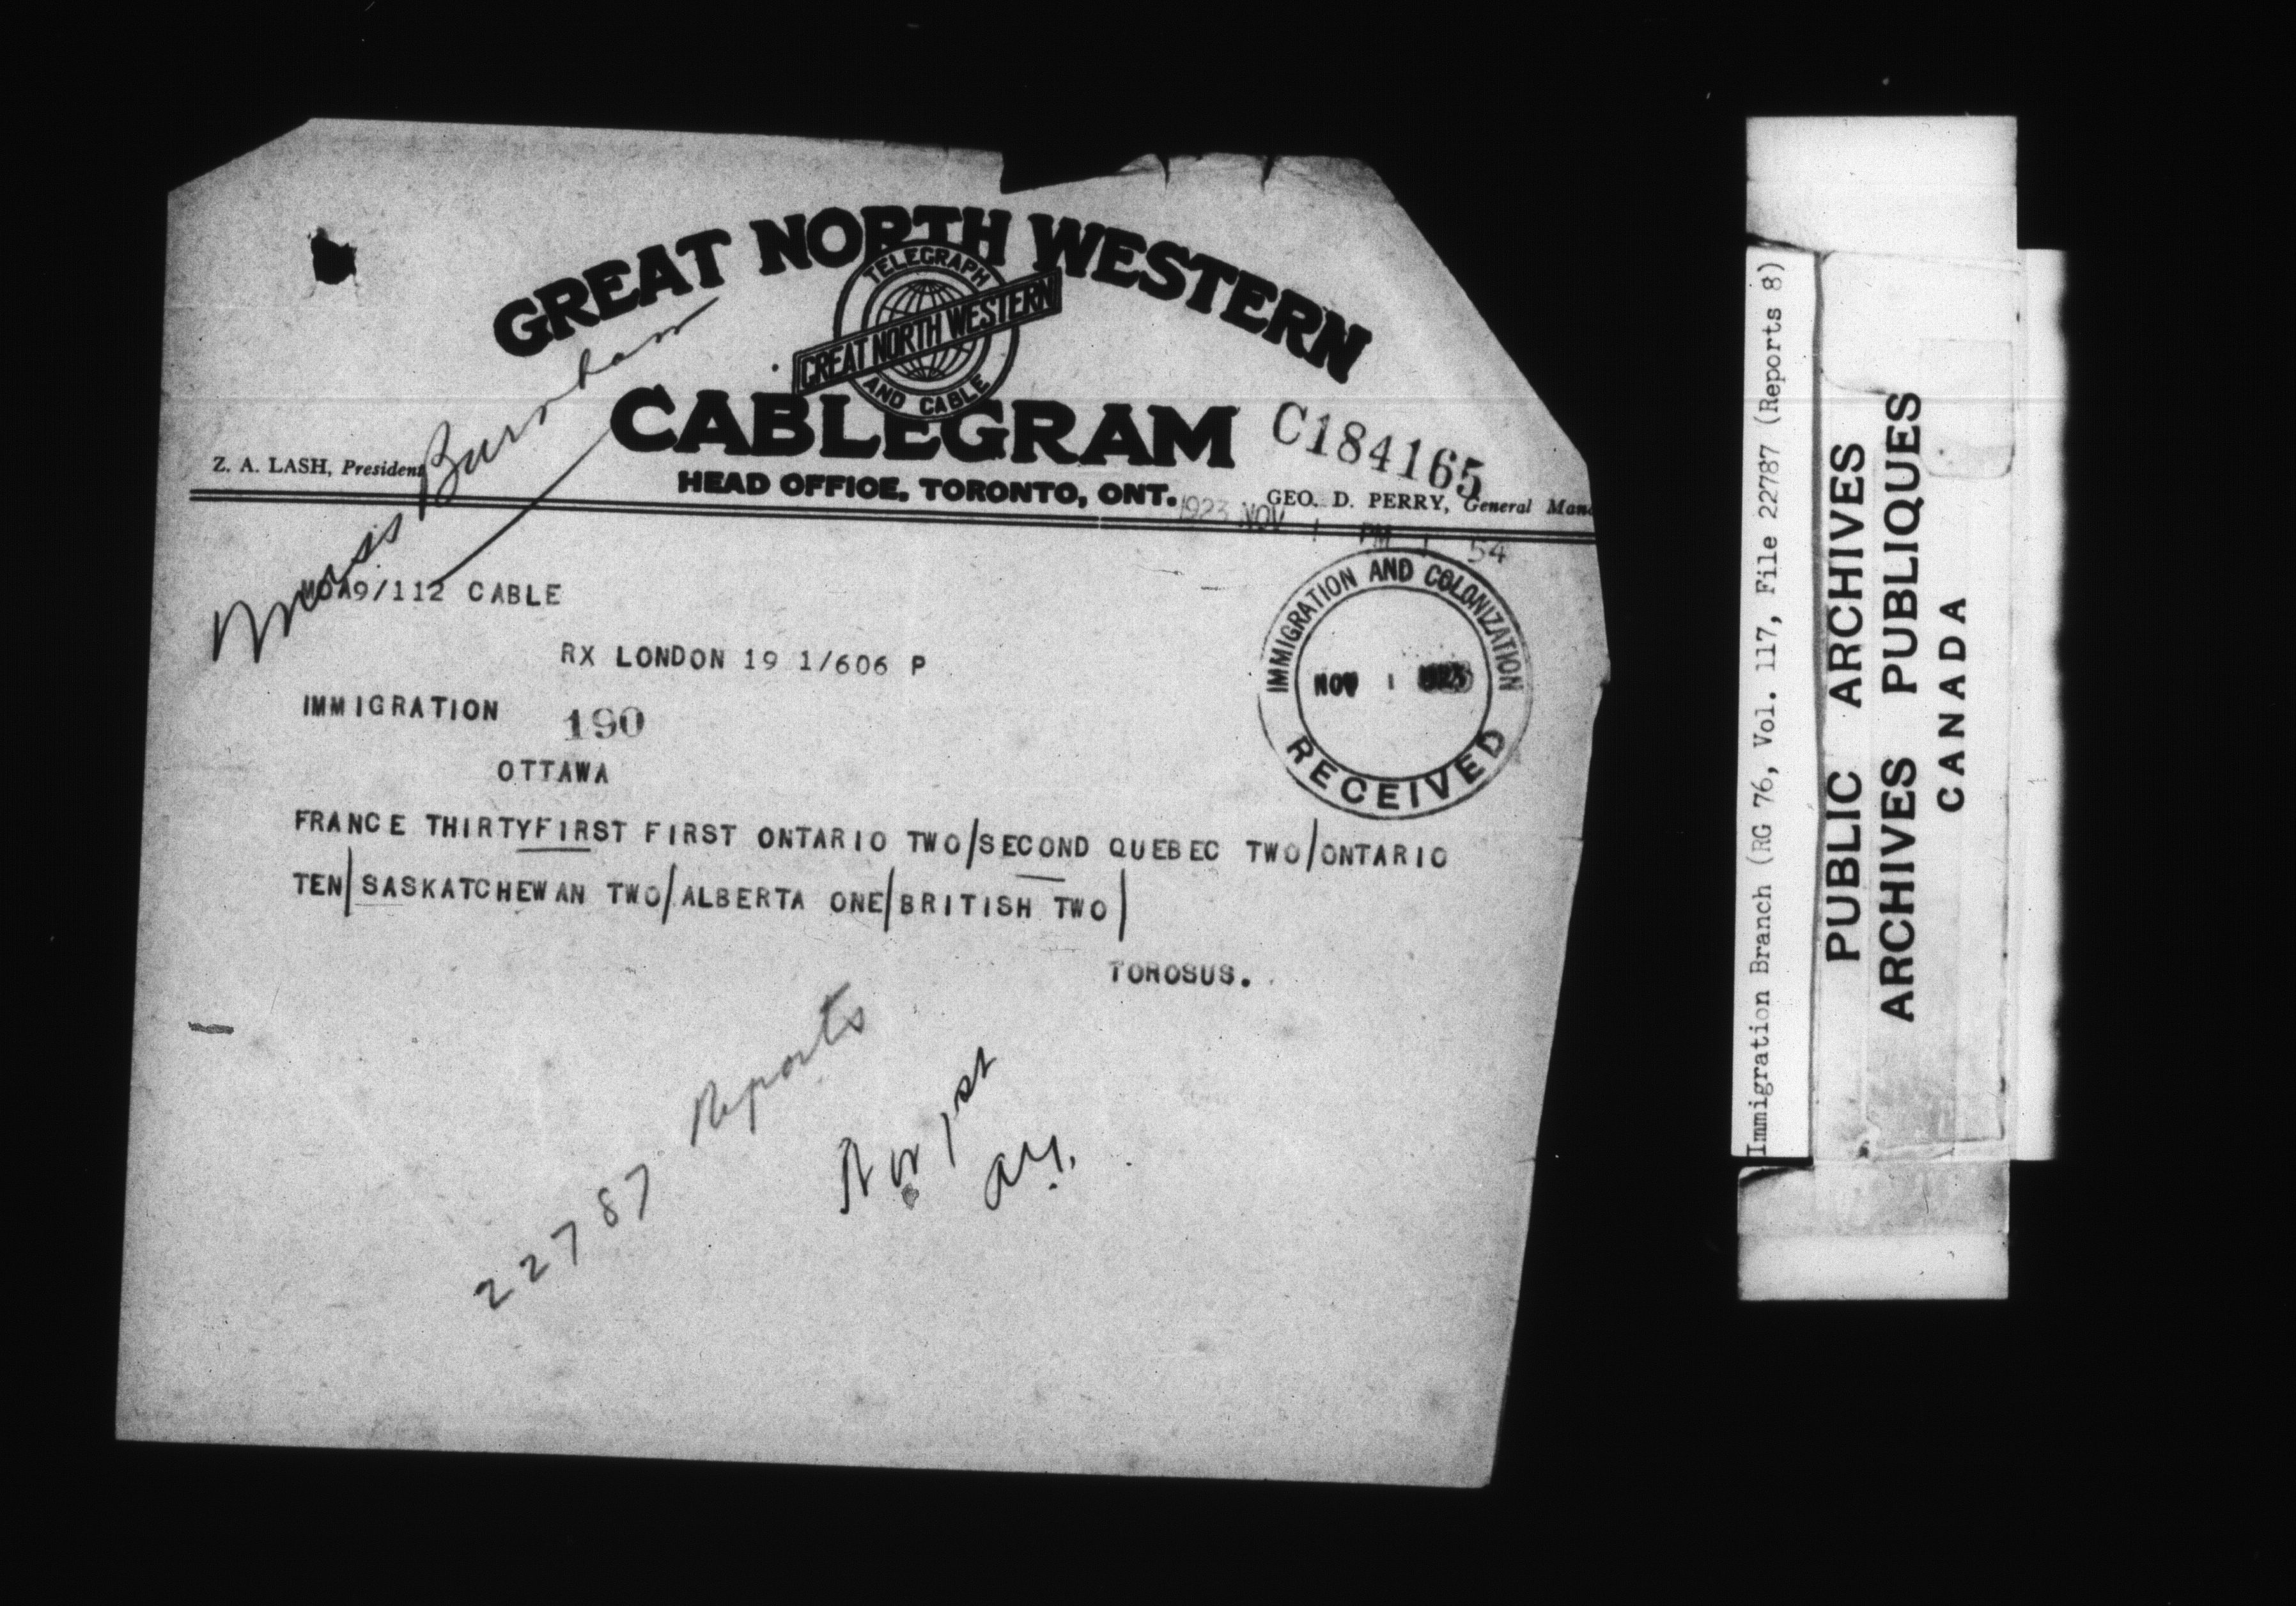 GREAT NORTH WESTERN
TELEGRAPH
GREAT NORTH WESTERN
AND CABLE
CABLEGRAM
C184165
HEAD OFFICE, TORONTO, ONT.
Z. A. LASH, President
GEO. D. PERRY, General Mana
1923 NOV 1 PM 1 54
Miss Burnham
MOA9/112 CABLE
RX LONDON 19 1/606 P
IMMIGRATION
190
OTTAWA
IMMIGRATION AND COLONIZATION
NOV 1 1923
RECEIVED
FRANCE THIRTYFIRST FIRST ONTARIO TWO/SECOND QUEBEC TWO/ONTARIO
TEN/SASKATCHEWAN TWO/ALBERTA ONE/BRITISH TWO/
TOROSUS.
22787 Reports
Nov 1st
Immigration Branch (RG 76, Vol. 117, File 22787 (Reports 8)
PUBLIC ARCHIVES
ARCHIVES PUBLIQUES
CANADA